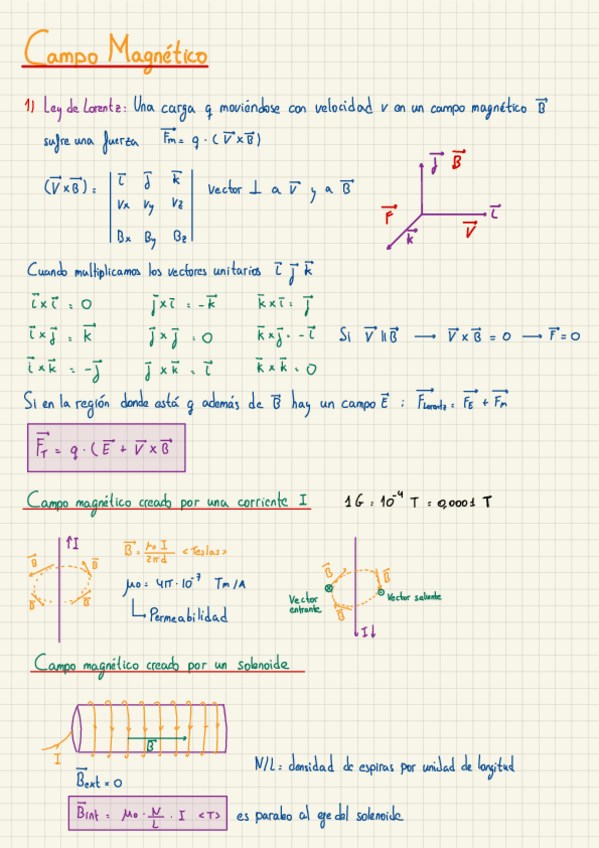 Campo Magnético
1) Ley de Lorentz: Una carga q moviéndose con velocidad v en un campo magnético B⃗
sufre una fuerza F⃗m = q · (V⃗ x B⃗)
(V⃗ x B⃗) = | i⃗ j⃗ k⃗ | vector ⊥ a V⃗ y a B⃗
Vx Vy Vz
Bx By Bz
j⃗ B⃗
F⃗ k⃗ V⃗ i⃗
Cuando multiplicamos los vectores unitarios i⃗ j⃗ k⃗
i⃗ x i⃗ = 0 j⃗ x i⃗ = -k⃗ k⃗ x i⃗ = j⃗
i⃗ x j⃗ = k⃗ j⃗ x j⃗ = 0 k⃗ x j⃗ = -i⃗ Si V⃗ || B⃗ → V⃗ x B⃗ = 0 → F⃗ = 0
i⃗ x k⃗ = -j⃗ j⃗ x k⃗ = i⃗ k⃗ x k⃗ = 0
Si en la región donde está q además de B⃗ hay un campo E⃗ : F⃗Lorentz = F⃗E + F⃗m
F⃗T = q · (E⃗ + V⃗ x B⃗
Campo magnético creado por una corriente I 1G = 10⁻⁴ T = 0,0001 T
↑I B⃗ = μ0 I / 2πd <Teslas>
B⃗ B⃗ B⃗ B⃗
μ0 = 4π · 10⁻⁷ Tm/A
Permeabilidad
B⃗ B⃗ B⃗
Vector entrante
Vector saliente
I↓
Campo magnético creado por un solenoide
B⃗
I
B⃗ext = 0
N/L = densidad de espiras por unidad de longitud
B⃗int = μ0 · N/L · I <T> es paralelo al eje del solenoide